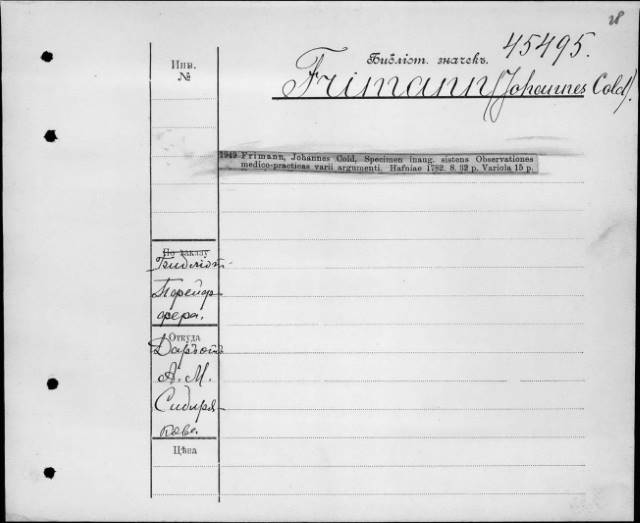 28
Инв.
№
Библіот. значекъ. 45495.
Frimann (Johannes Cold).
1949 Frimann, Johannes Cold, Specimen inaug. sistens Observationes
medico-practicas varii argumenti. Hafniae 1782. 8. 32 p. Variola 15 p.
По заказу
Библіот.
Перейар-
фера.
Откуда
Даръ отъ
А. М.
Сибиря-
кова.
Цѣна